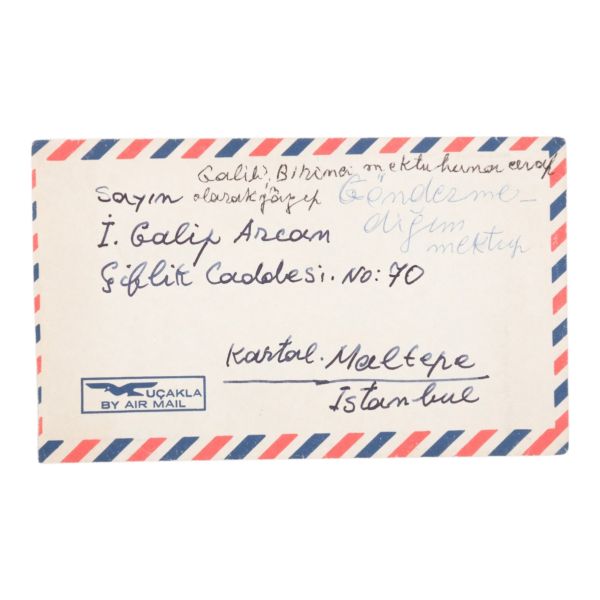 Galibi, Birinci mektubuna cevap
Sayın olarak yazıp Gönderme-
diğim
mektup
İ. Galip Arcan
Çiflik Caddesi. No: 70
Kartal. Maltepe
İstanbul
UÇAKLA
BY AIR MAIL